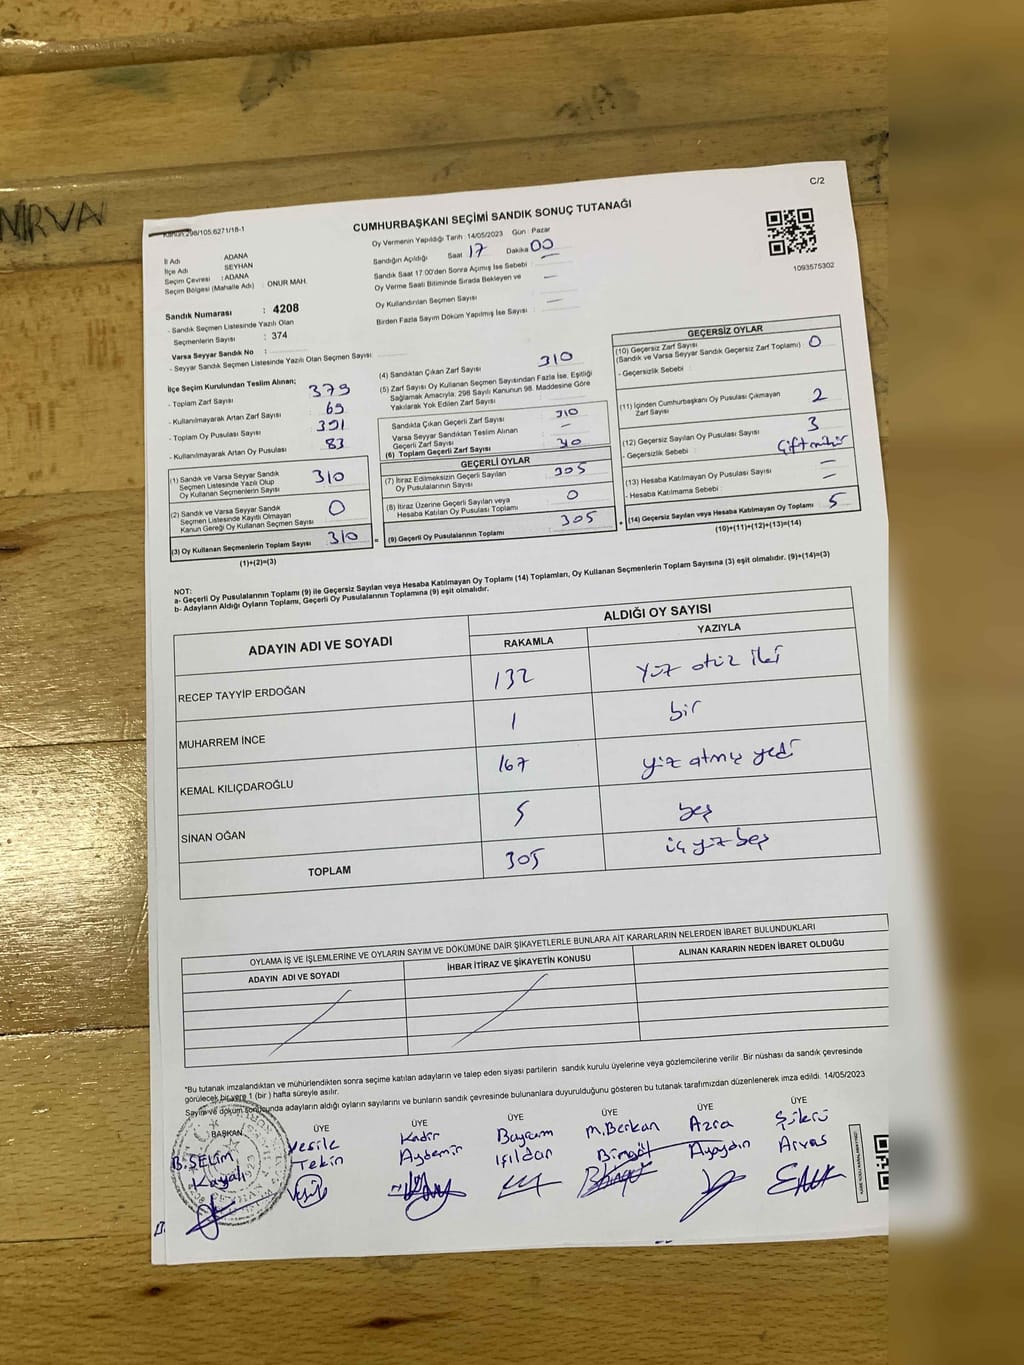 NİRVA
C/2
Kanun 298/105,6271/18-1
CUMHURBAŞKANI SEÇİMİ SANDIK SONUÇ TUTANAĞI
Oy Vermenin Yapıldığı Tarih : 14/05/2023 Gün : Pazar
İl Adı ADANA
İlçe Adı SEYHAN
Seçim Çevresi : ADANA
Seçim Bölgesi (Mahalle Adı) : ONUR MAH.
Sandığın Açıldığı Saat 17 Dakika 00
Sandık Saat 17:00'den Sonra Açımış İse Sebebi : —
Oy Verme Saati Bitiminde Sırada Bekleyen ve
Oy Kullandırılan Seçmen Sayısı —
Birden Fazla Sayım Döküm Yapılmış İse Sayısı : —
1093575302
Sandık Numarası : 4208
- Sandık Seçmen Listesinde Yazılı Olan
Seçmenlerin Sayısı : 374
Varsa Seyyar Sandık No :
- Seyyar Sandık Seçmen Listesinde Yazılı Olan Seçmen Sayısı:
İlçe Seçim Kurulundan Teslim Alınan;
- Toplam Zarf Sayısı 379
- Kullanılmayarak Artan Zarf Sayısı 69
- Toplam Oy Pusulası Sayısı 391
- Kullanılmayarak Artan Oy Pusulası 83
(1) Sandık ve Varsa Seyyar Sandık
Seçmen Listesinde Yazılı Olup
Oy Kullanan Seçmenlerin Sayısı 310
(2) Sandık ve Varsa Seyyar Sandık
Seçmen Listesinde Kayıtlı Olmayan
Kanun Gereği Oy Kullanan Seçmen Sayısı 0
(3) Oy Kullanan Seçmenlerin Toplam Sayısı 310
(1)+(2)=(3)
(4) Sandıktan Çıkan Zarf Sayısı 310
(5) Zarf Sayısı Oy Kullanan Seçmen Sayısından Fazla İse, Eşitliği
Sağlamak Amacıyla; 298 Sayılı Kanunun 98. Maddesine Göre
Yakılarak Yok Edilen Zarf Sayısı
Sandıkta Çıkan Geçerli Zarf Sayısı 310
Varsa Seyyar Sandıktan Teslim Alınan
Geçerli Zarf Sayısı —
(6) Toplam Geçerli Zarf Sayısı 310
GEÇERLİ OYLAR
(7) İtiraz Edilmeksizin Geçerli Sayılan
Oy Pusulalarının Sayısı 305
(8) İtiraz Üzerine Geçerli Sayılan veya
Hesaba Katılan Oy Pusulası Toplamı 0
= (9) Geçerli Oy Pusulalarının Toplamı 305
GEÇERSİZ OYLAR
(10) Geçersiz Zarf Sayısı
(Sandık ve Varsa Seyyar Sandık Geçersiz Zarf Toplamı) 0
- Geçersizlik Sebebi :
(11) İçinden Cumhurbaşkanı Oy Pusulası Çıkmayan
Zarf Sayısı 2
(12) Geçersiz Sayılan Oy Pusulası Sayısı 3
- Geçersizlik Sebebi : Çift mühür
(13) Hesaba Katılmayan Oy Pusulası Sayısı —
- Hesaba Katılmama Sebebi : —
+ (14) Geçersiz Sayılan veya Hesaba Katılmayan Oy Toplamı 5
(10)+(11)+(12)+(13)=(14)
NOT:
a- Geçerli Oy Pusulalarının Toplamı (9) ile Geçersiz Sayılan veya Hesaba Katılmayan Oy Toplamı (14) Toplamları, Oy Kullanan Seçmenlerin Toplam Sayısına (3) eşit olmalıdır. (9)+(14)=(3)
b- Adayların Aldığı Oyların Toplamı, Geçerli Oy Pusulalarının Toplamına (9) eşit olmalıdır.
ADAYIN ADI VE SOYADI ALDIĞI OY SAYISI
RAKAMLA YAZIYLA
RECEP TAYYİP ERDOĞAN 132 Yüz otuz iki
MUHARREM İNCE 1 bir
KEMAL KILIÇDAROĞLU 167 yüz atmış yedi
SİNAN OĞAN 5 beş
TOPLAM 305 üç yüz beş
OYLAMA İŞ VE İŞLEMLERİNE VE OYLARIN SAYIM VE DÖKÜMÜNE DAİR ŞİKAYETLERLE BUNLARA AİT KARARLARIN NELERDEN İBARET BULUNDUKLARI
ADAYIN ADI VE SOYADI İHBAR İTİRAZ VE ŞİKAYETİN KONUSU ALINAN KARARIN NEDEN İBARET OLDUĞU
*Bu tutanak imzalandıktan ve mühürlendikten sonra seçime katılan adayların ve talep eden siyasi partilerin sandık kurulu üyelerine veya gözlemcilerine verilir. Bir nüshası da sandık çevresinde
görülecek bir yere 1 (bir) hafta süreyle asılır.
Sayım ve döküm sonucunda adayların aldığı oyların sayılarını ve bunların sandık çevresinde bulunanlara duyurulduğunu gösteren bu tutanak tarafımızdan düzenlenerek imza edildi. 14/05/2023
BAŞKAN ÜYE ÜYE ÜYE ÜYE ÜYE ÜYE
B. SELİM Yesile Kadir Bayram M. Berkan Azra Şükrü
Kayalı Tekin Aydemir Işıldar Bingöl Ayaydın Arvas